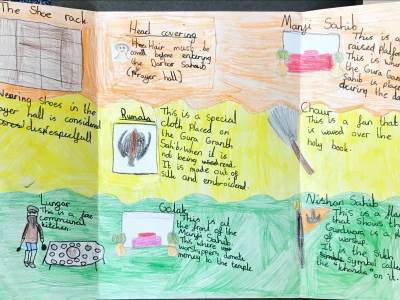 The Shoe rack
Wearing shoes in the
prayer hall is considered
disrespectfull
Head covering
Hair must be
before entering
the Darbar Sahaib
(Prayer hall)
Manji Sahib
This is a
raised platform
This is where
the Guru Granth
Sahib is place
during the da
Rumala
This is a special
cloth placed on
the Guru Granth
Sahib when it is
not being read.
It is made out of
silk and embroidered.
Chaur
This is a fan that
is waved over the
holy book.
Lungar
This is a free
communal
kitchen.
Golak
This is at
the front of the
Manji Sahib
This where
worshippers donate
money to the temple
Nishan Sahib
This is a fla
that shows th
Gurdwara is a p
of worship.
It is the Sikh
symbol calle
the "khanda" on it.